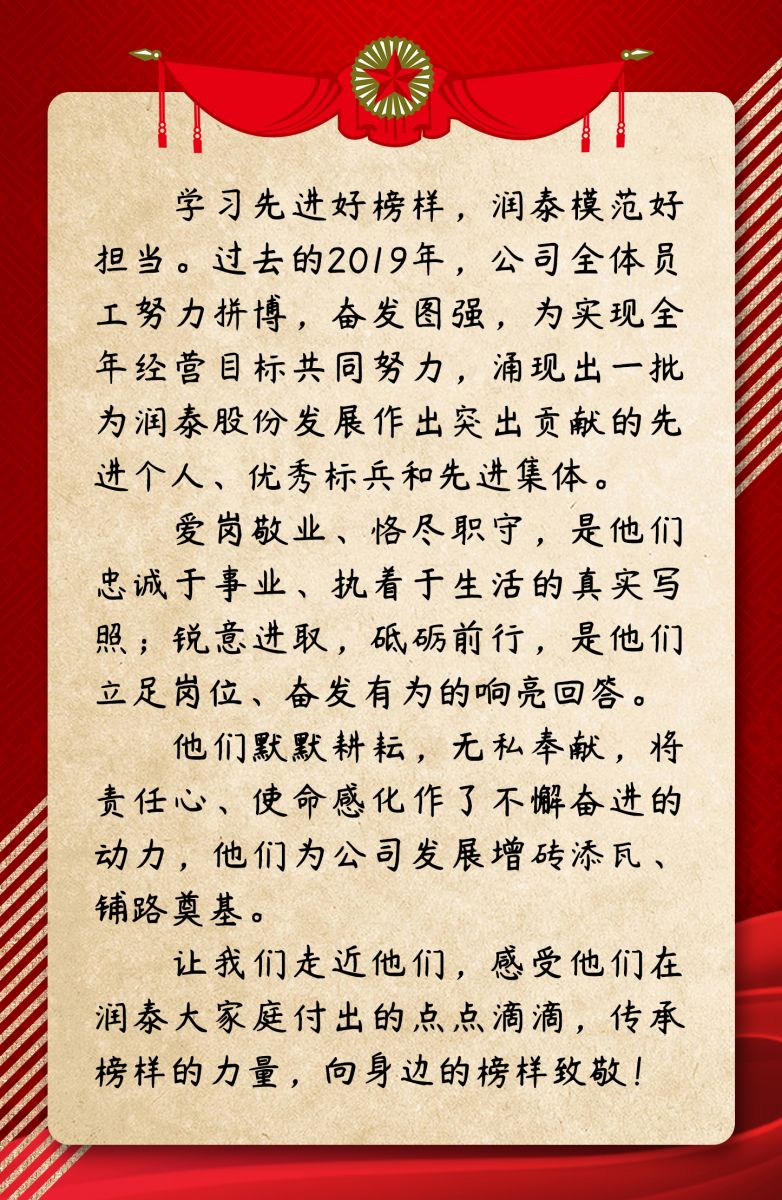 学习先进好榜样，润泰模范好
担当。过去的2019年，公司全体员
工努力拼博，奋发图强，为实现全
年经营目标共同努力，涌现出一批
为润泰股份发展作出突出贡献的先
进个人、优秀标兵和先进集体。
爱岗敬业、恪尽职守，是他们
忠诚于事业、执着于生活的真实写
照；锐意进取，砥砺前行，是他们
立足岗位、奋发有为的响亮回答。
他们默默耕耘，无私奉献，将
责任心、使命感化作了不懈奋进的
动力，他们为公司发展增砖添瓦、
铺路奠基。
让我们走近他们，感受他们在
润泰大家庭付出的点点滴滴，传承
榜样的力量，向身边的榜样致敬！